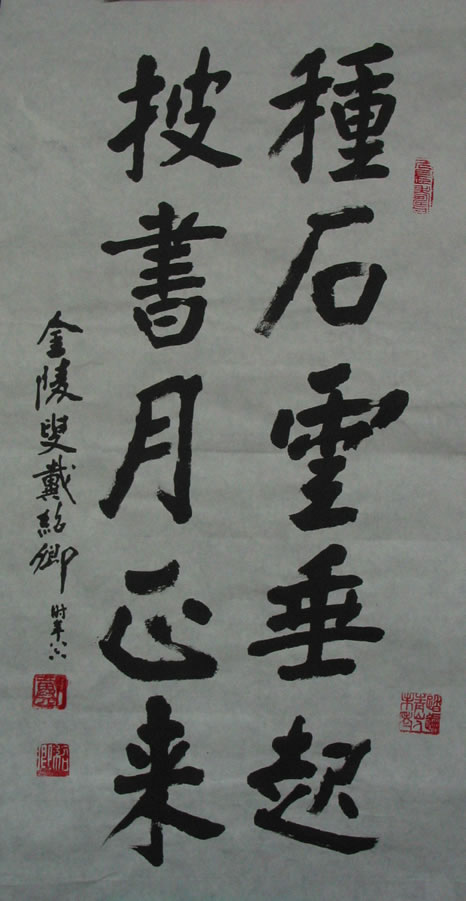 種石雲垂起
披書月正来
金陵叟戴紹卿时年八六